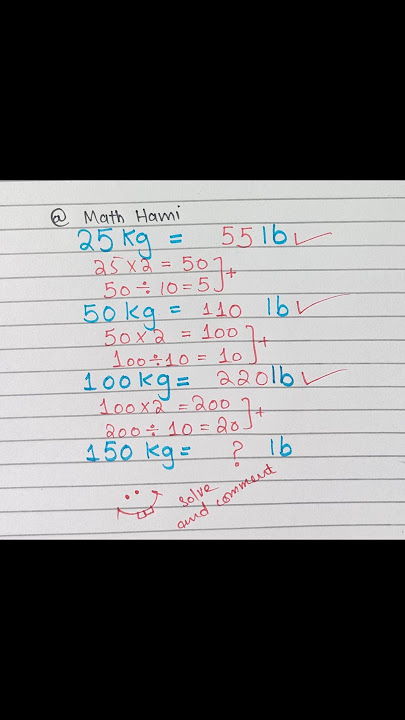 @ Math Hami
25 kg = 55 lb ✓
25 × 2 = 50
50 ÷ 10 = 5 ] +
50 kg = 110 lb ✓
50 × 2 = 100
100 ÷ 10 = 10 ] +
100 kg = 220 lb ✓
100 × 2 = 200
200 ÷ 10 = 20 ] +
150 kg = ? lb
solve
and comment